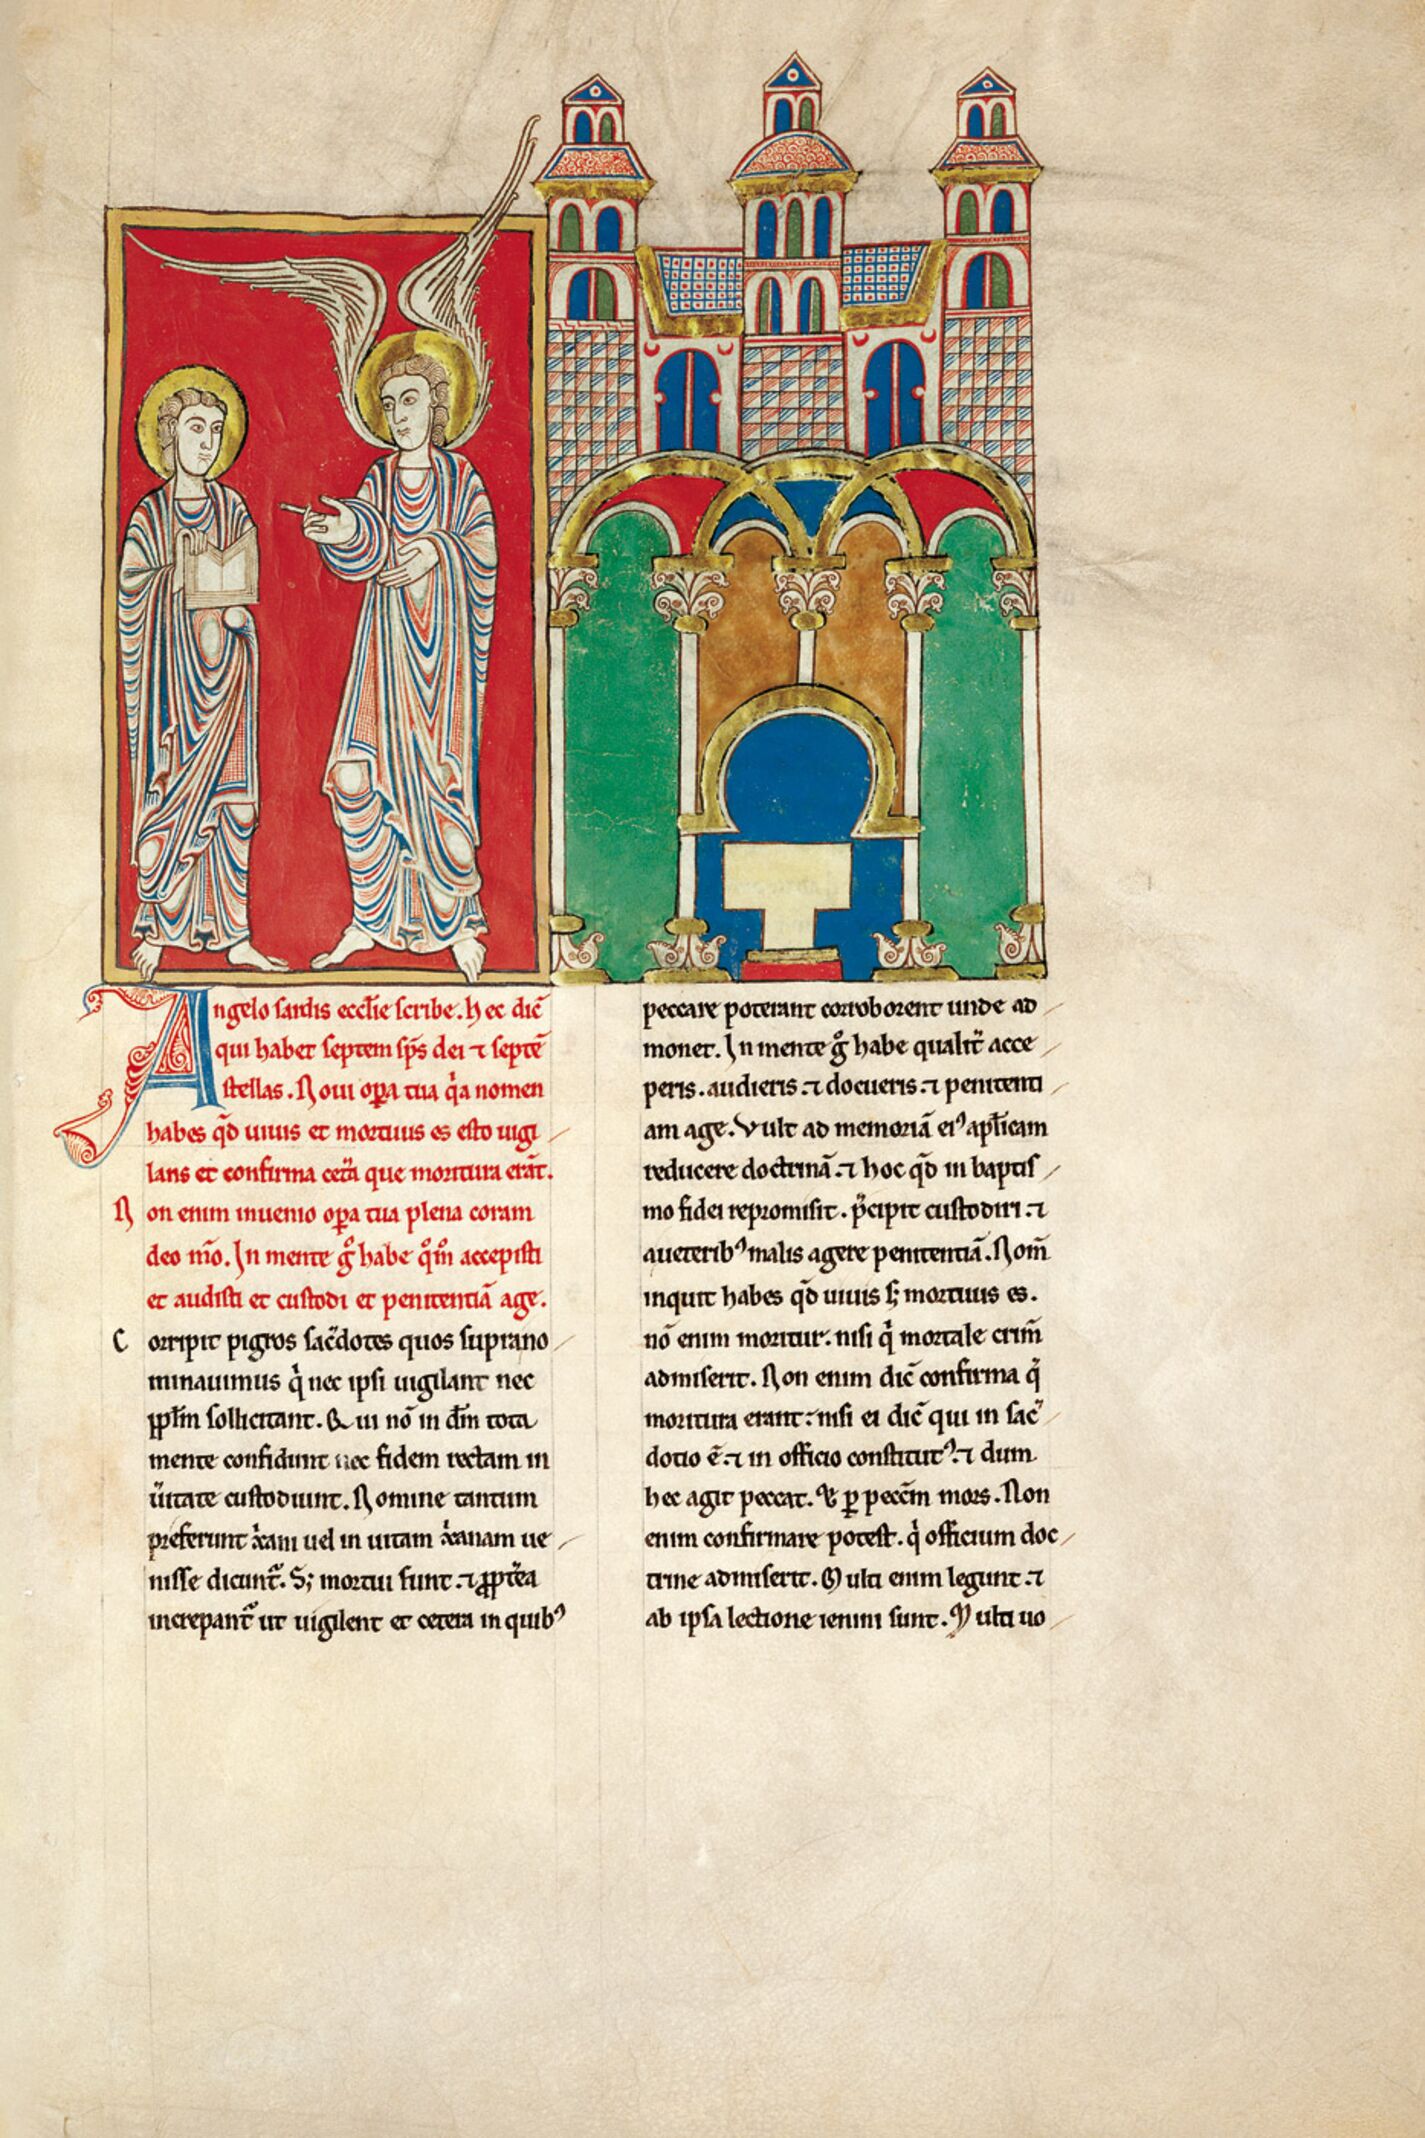 Angelo sardis ecclie scribe. hec dic̄
qui habet septem sp̄s dei ⁊ septē
stellas. Noui oꝑa tua q̇a nomen
habes qd̄ uiuis et mortuus es esto uigi
lans et confirma cet̄a que moritura erāt.
Non enim inuenio oꝑa tua plena coram
deo m̄o. In mente gͦ habe qͦmͦ accepisti
et audisti et custodi et penitentiā age.
Corripit pigros sac̄dotes quos supra no
minauimus q̇ nec ipsi uigilant nec
ppl̄m sollicitant. Qui nō in dm̄ tota
mente confidunt nec fidem rectam in
ūitate custodiunt. Nomine tantum
preferunt xꝛ̄am uel in uitam xꝛ̄anam ue
nisse dicunt᷑. S; mortui sunt. ⁊ ꝓpt̄ea
increpant᷑ ut uigilent et cetera in quibꝰ
peccare poterant corroborent unde ad
monet. In mente gͦ habe qualit̄ acce
peris. audieris. ⁊ docueris. ⁊ penitenti
am age. Vult ad memoriā eiꝰ apl̄icam
reducere doctrinā. ⁊ hoc qd̄ in baptis
mo fidei repromisit. p̄cipit custodiri. ⁊
a ueteribꝰ malis agere penitentiā. Nom̄
inquit habes qd̄ uiuis s; mortuus es.
nō enim moritur. nisi q̇ mortale crim̄
admiserit. Non enim dic̄ confirma q̄
moritura erant. nisi ei dic̄ qui in sac̄
dotio ē. ⁊ in officio constitutꝰ. ⁊ dum
hec agit peccat. & ꝑ pecc̄m mors. Non
enim confirmare potest. q̇ officium doc
trine admiserit. Multi enim legunt. ⁊
ab ipsa lectione ieiuni sunt. Multi uo